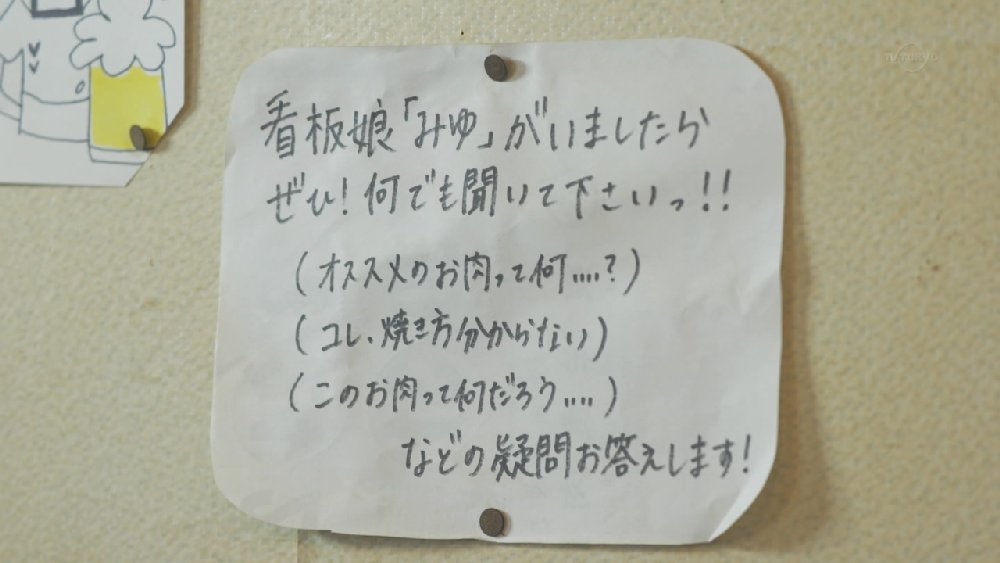 看板娘「みゆ」がいましたら
ぜひ!何でも聞いて下さいっ!!
(オススメのお肉って何....?)
(コレ、焼き方分からない)
(このお肉って何だろう....)
などの疑問お答えします!
TV TOKYO